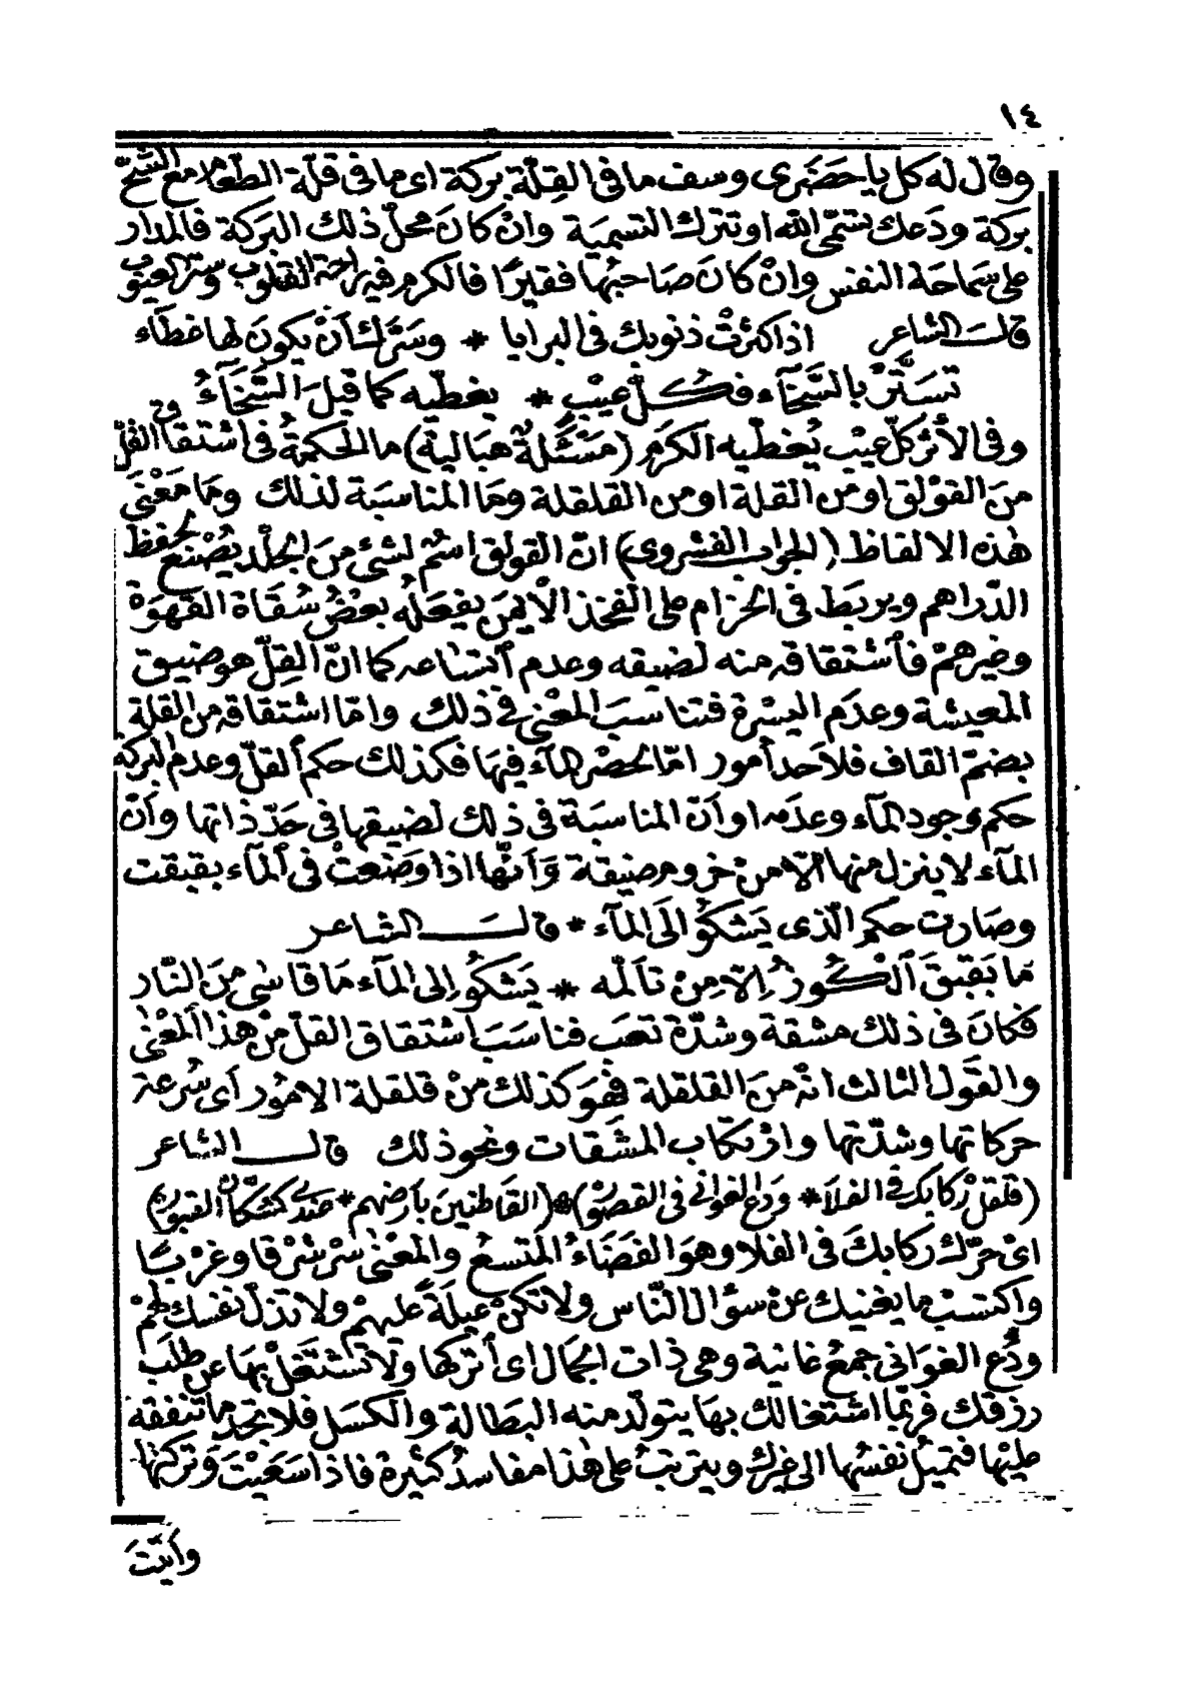 ١٤
وقال له كل يا حضرى وسف ما فى القِلّة بركة اى ما فى قلّة الطعام مع الشحّ
بركة ودَعك تسمّى الله او تترك التسمية وانْ كانَ محلّ ذلك البَركة فالمدار
على سَماحَة النفس وانْ كانَ صَاحبُها فقيرًا فالكرم فيه راحة القلوب وستر العيوب
قالَ الشاعر اذا كثرَتْ ذنوبك فى البرايا * وسَرَّك أنْ يكونَ لها غطآء
تسَتَّرْ بالسَّخآء فكلّ عيْب * يغطّيه كما قيلَ السَّخَآءُ
وفى الأثر كلّ عيْب يُغطّيه الكرَم (مَسْئلةٌ هبالية) ما الحكمةُ فى اشتقاق القلّ
منَ القوْلق او مَن القلة او من القلقلة ومَا المناسَبَة لذلك ومَا مَعْنى
هٰذه الالفاظ (الجواب الفشروى) انّ القولق اسْمٌ لشئ منَ الجلْد يصْنع لحفظ
الدّراهم ويربَط فى الحزام على الفخذ الأيمَن يفعَلُه بعضُ سُقاة القهوَة
وغيرهمْ فأشتقاقه منه لضيقه وعدم أتساعه كما انّ القِلّ هو ضيق
المَعيشة وعدَم اليسْرة فتناسبَ المعْنى فى ذلك وامّا اشتقاقه من القلة
بضمّ القاف فلأحد أمور امّا لحصْر المآء فيهَا فكذلك حكم ألقلّ وعدم البركة
حكم وجود المآء وعدَمه او أنّ المناسَبَة فى ذلك لضيقها فى حَدّ ذاتها وأنّ
المآء لا ينزل منها الّا منْ خروم ضيقة وَأنّها اذا وَضعتْ فى ألمآء بقبقت
وصَارت حكم الّذى يَشكوُ الَى المآء * قالَ الشاعر
مَا بَقبقَ ٱلْكُوزُ إلّا مِنْ تألّمه * يَشكوُ إلى المآء مَا قاسٰى مِنَ النّار
فكانَ فى ذلك مشقة وشدّة تعَب فناسَبَ اشتقاق القلّ منْ هٰذا ألمعْنى
والقوْل الثالث انّه منَ القلقلة فهوَ كذلك منْ قلقلة الامُور أى سُرعة
حركاتها وشدّتها وارْتكاب المشَقات ونحو ذلك قال الشاعر
(قلقلْ ركابك فى الفلَا * ودَع الغوانى فى القصُورْ) * (القاطنينَ بأرضهم * عندى كسُكّان القبورْ)
اىْ حرّك ركابكَ فى الفلا وهوَ الفَضَاءُ المتسعُ والمعْنٰى سرْ شرْقا وغرْبًا
واكتسبْ ما يغنيك عنْ سؤال النّاس ولا تكنْ عيلَةً عليهمْ ولا تذلّ نفسك لهمْ
ودَّع الغوَانى جمعُ غانية وهى ذات الجمَال اى أتركها ولا تشتَغلْ بهَا عن طلَب
رزقك فربّما اشتغالك بهَا يتولّد منه البَطالة والكسَل فلا تجد ما تنفقه
عليْها فتميْلُ نفسُها الى غيرك ويترتبُ على هٰذا مفاسدُ كثيرة فاذا سَعَيْتَ وتركتها
وأبَتَ